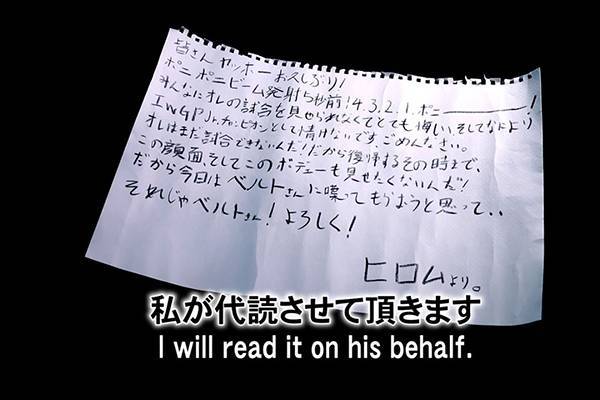 皆さんヤッホーお久しぶり!
ポニポニビーム発射5秒前!4.3.2.1.ポニ――――!
みんなにオレの試合を見せられなくてとても悔しい、そしてなにより
IWGP Jr.チャンピオンとして情けないです、ごめんなさい。
オレはまだ試合できないんだ!だから復帰するその時まで、
この顔面、そしてこのボデーも見せたくないんだ!
だから今日はベルトさんに喋ってもらおうと思って、、
それじゃベルトさん!よろしく!
ヒロムより。
私が代読させて頂きます
I will read it on his behalf.